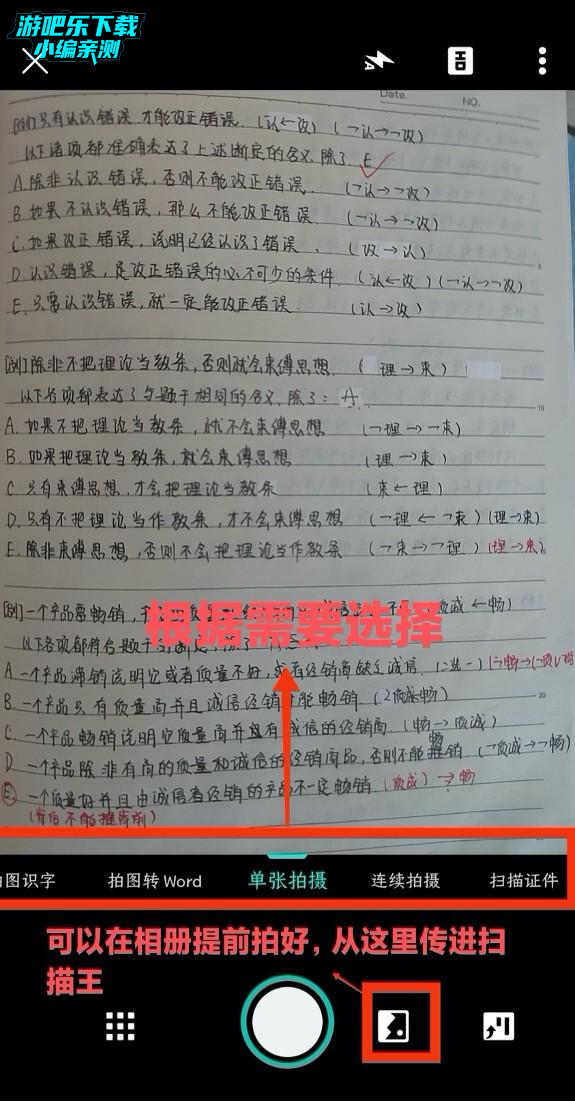 游吧乐下载
小编亲测
A
HD
Date.
NO.
[例]只有认识错误,才能改正错误. (认←改) (¬认→¬改)
以下诸项都准确表达了上述断定的含义,除了 E
A.除非认识错误,否则不能改正错误. (¬认→¬改)
B.如果不认识错误,那么不能改正错误 (¬认→¬改)
C.如果改正错误,说明已经认识了错误. (改→认)
D.认识错误,是改正错误的必不可少的条件. (认←改) (¬认→¬改)
E.只要认识错误,就一定能改正错误. (认→改)
[例]除非不把理论当教条,否则就会束缚思想. ( 理→束)
以下各项都表达了与题干相同的含义,除了: A
10
A.如果不把理论当教条,就不会束缚思想 (¬理→¬束)
B.如果把理论当教条,就会束缚思想 (理→束)
C.只有束缚思想,才会把理论当教条 (束←理)
D.只有不把理论当作教条,才不会束缚思想 (¬理←¬束) (理→束)
E.除非束缚思想,否则不会把理论当作教条 (¬束→¬理) (理→束)
根据需要选择
[例]一个产品要畅销, 质诚←畅)
以下各项都符合题干
A.一个产品滞销说明它或者质量不好,或者经销商缺乏诚信.
B.一个产品只有质量高并且诚信经销才能畅销.
20
C.一个产品畅销说明它质量高并且有诚信的经销商. (畅→质诚)
D.一个产品除非有高的质量和诚信的经销商品,否则不能畅销. (¬质诚→¬畅)
E.一个质量好并且由诚信者经销的产品不一定畅销. (质诚) → 畅
?
拍图识字 拍图转Word 单张拍摄 连续拍摄 扫描证件
可以在相册提前拍好,从这里传进扫
描王